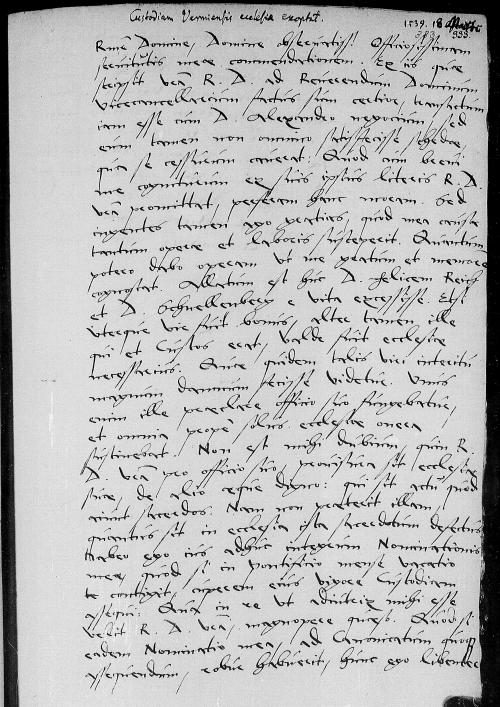 Custodiam Varmiensis ecclesiae exoptat.
1539. 18
333.
Rme Domine, Domine observatiss. Officiosissimam
servitutis meae commendationem. Ex iis quae
scripsit vra R. D. ad Reverendum Dominum
Vicecancellarium factus sum certior, transactum
iam esse cum D. Alexandro negocium, sed
eum tamen non omnino satisfecisse schedae,
qua se cessurum caverat: Quod cum brevi
me cogniturum ex suis ipsius literis R. D.
vra promittat, perferam hanc moram. Sed
ingentes tamen ago gratias, quod mea causa
tantum operae et laboris susceperit. Quantum
potero dabo operam ut me gratum et memorem
cognoscat. Allatum est huc D. Felicem Reich
et D. Schnellenberg e vita excessisse. Etsi
uterque vir fuit bonus, alter tamen ille
qui et Custos erat, valde fuit ecclesiae
necessarius: Quare quidem talis viri interitu
magnum damnum fecisse videtur. Unus
enim ille praeclare officio suo fungebatur,
et omnia prope solus ecclesiae onera
sustinebat. Non est mihi dubium, quin R.
D. vra pro officio suo, provisura sit ecclesiae
suae, de alio aeque digno: qui sit actu quod
aiunt sacerdos. Nam non praeterit illam,
quantus sit in ecclesia ista sacerdotum defectus.
Habeo ego ius adhuc integrum Nominationis
meae, quod si in pontificio mense vacatio
contigit, cuperem eius vigore Custodiam
assequi: Qua in re ut adiutrix mihi esse
velit R. D. vra, magnopere quaeso. Quod si
eadem Nominatio mea, ad Canonicatum quoque
assequendum, robur habuerit, hunc ego libenter